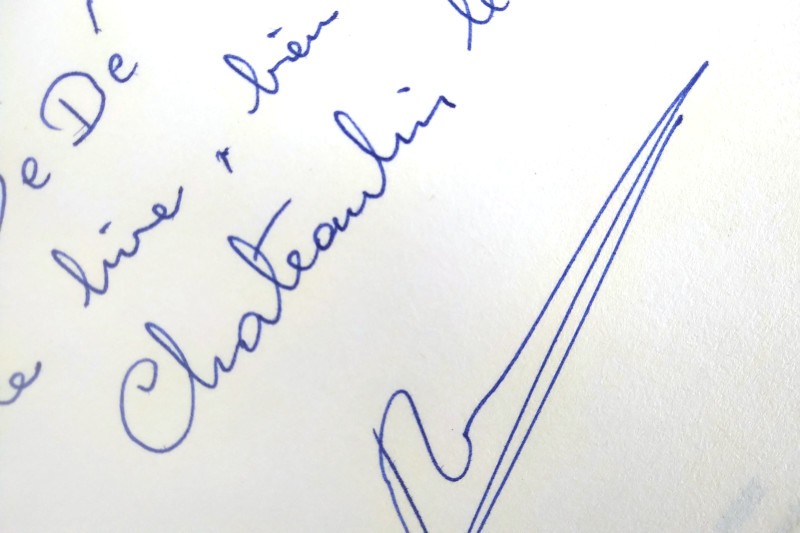 De Dé
e livre, bien
Chateaulin le